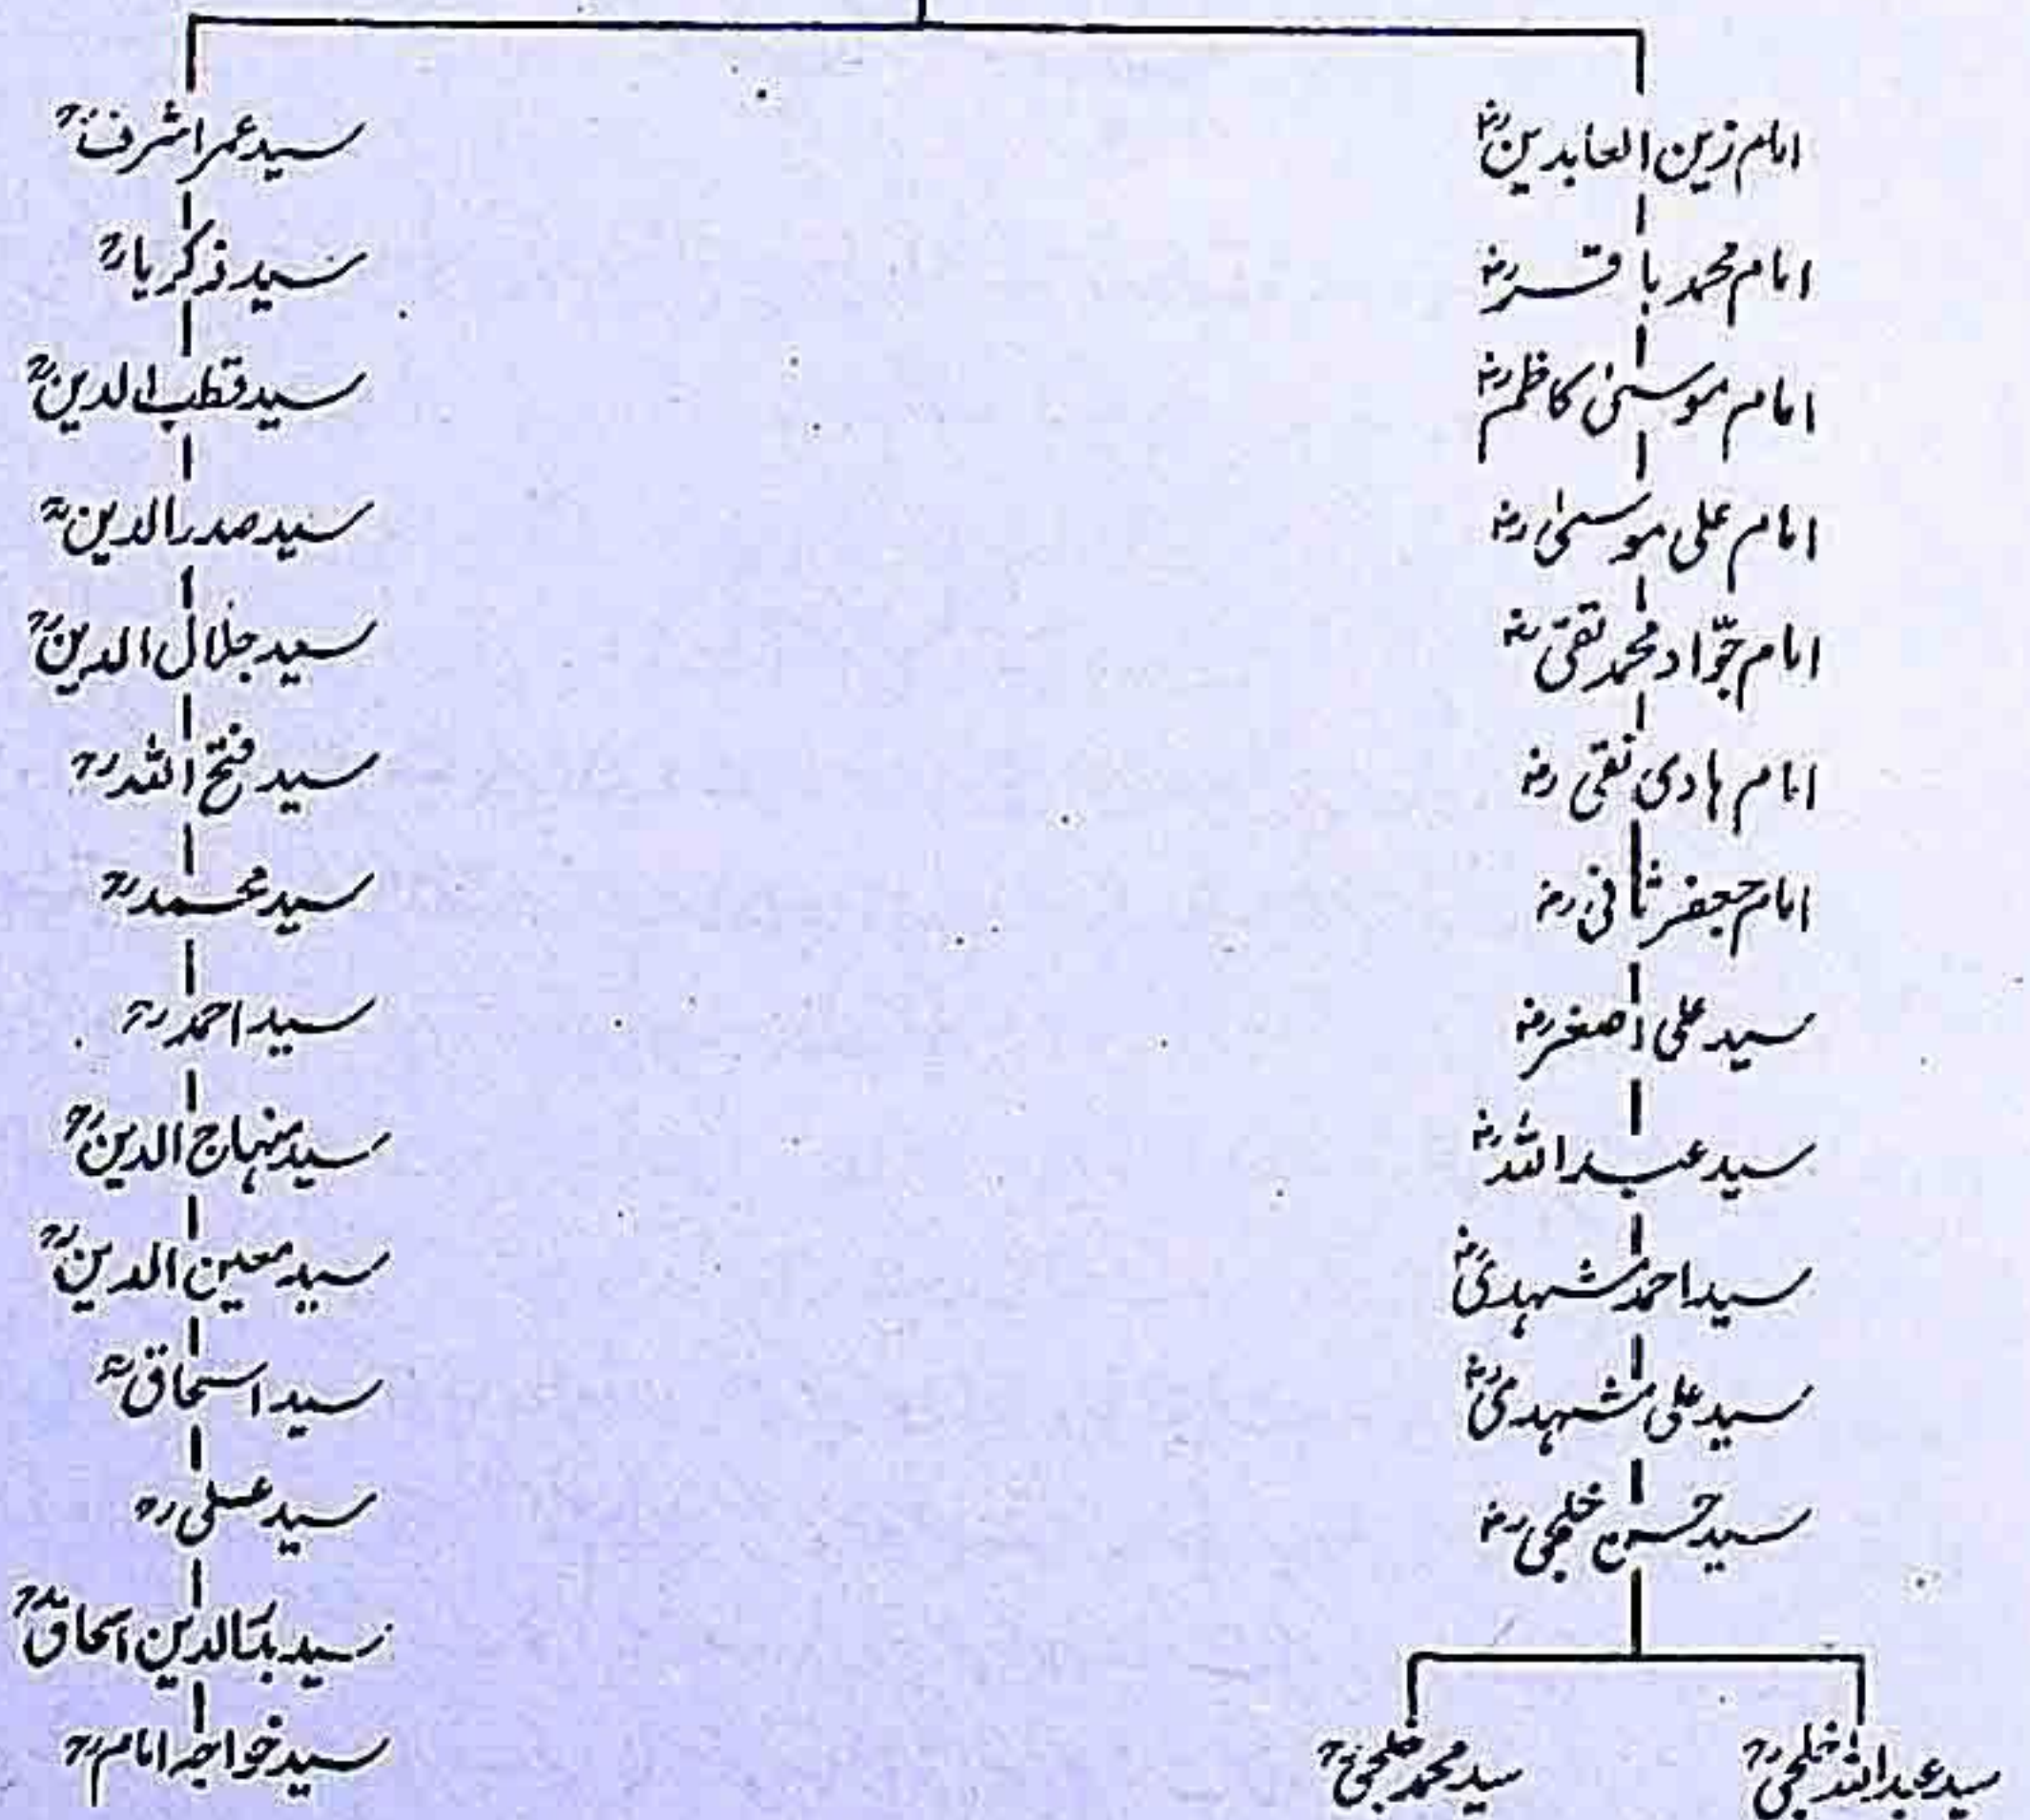 امام زین العابدینؓ
امام محمد باقرؓ
امام موسیٰ کاظمؓ
امام علی موسیٰؓ
امام جوّاد محمد تقیؓ
امام ہادی نقیؓ
امام جعفر ثانیؓ
سید علی اصغرؓ
سید عبداللہؓ
سید احمد شہدیؓ
سید علی شہدیؓ
سید حسن خلجیؓ
سید عبداللہ خلجیؒ
سید محمد خلجیؒ
سید عمر اشرفؒ
سید ذکریاؒ
سید قطب الدینؒ
سید صدر الدینؒ
سید جلال الدینؒ
سید فتح اللہؒ
سید محمدؒ
سید احمدؒ
سید منہاج الدینؒ
سید معین الدینؒ
سید اسحاقؒ
سید علیؒ
سید الدین اسحاقؒ
سید خواجہ امامؒ